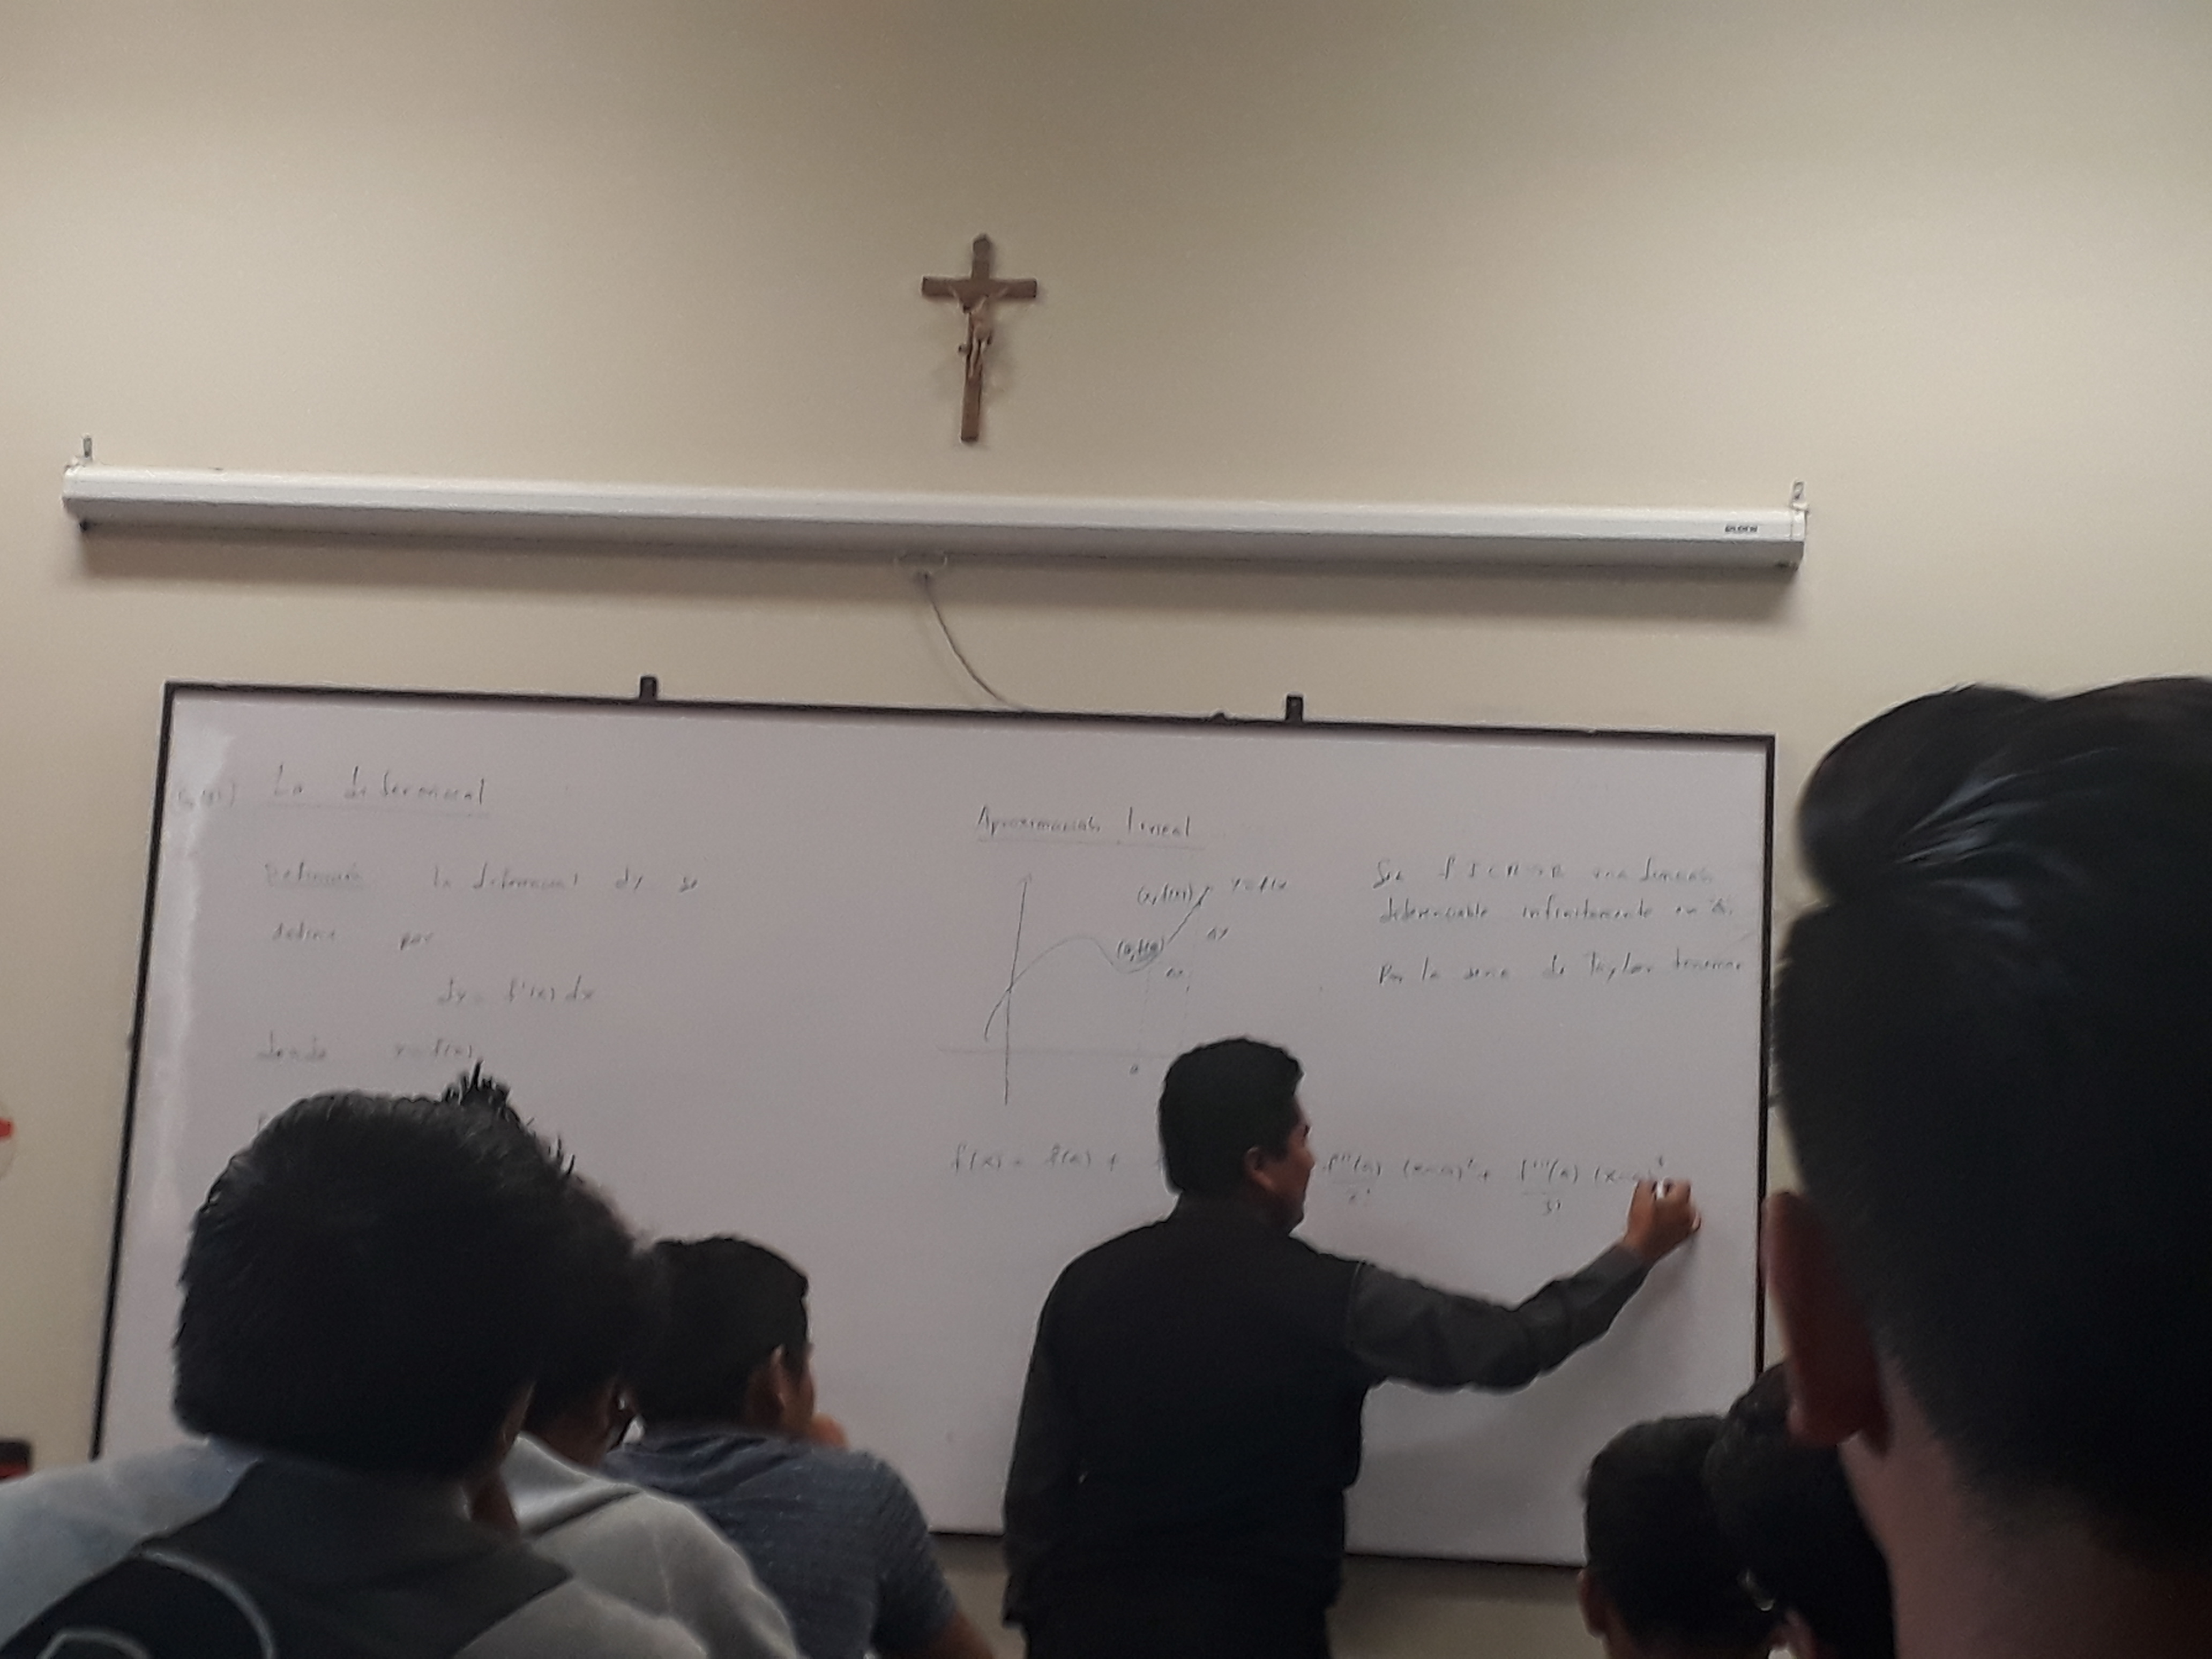 La diferencial
Definición La diferencial dy se
define por
dy = f'(x) dx
donde y = f(x)
Aproximación lineal
(x, f(x)) y = f(x)
(a, f(a)) Δy
Δx
a
Sea f: I ⊂ R → R una función
diferenciable infinitamente en "a".
Por la serie de Taylor tenemos
f(x) = f(a) + f''(a)/2! (x-a)² + f'''(a)/3! (x-a)³